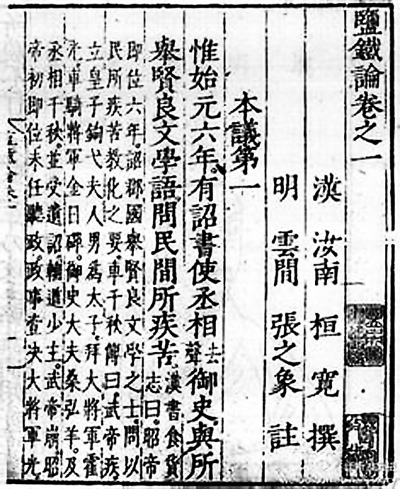 鹽鐵論卷之一
漢 汝南 桓寬 撰
明 雲間 張之象 註
本議第一
惟始元六年。有詔書使丞相去聲御史。與所
舉賢良文學。語問民間所疾苦。漢書食貨志曰。昭帝
即位六年。詔郡國舉賢良文學之士。問以
民所疾苦。教化之要。車千秋傳曰。武帝疾。
立皇子鉤弋夫人男為太子。拜大將軍霍
光。車騎將軍金日磾。御史大夫桑弘羊。及
丞相千秋。並受遺詔。輔道少主。武帝崩。昭
帝初即位。未任聽政。政事壹決大將軍光